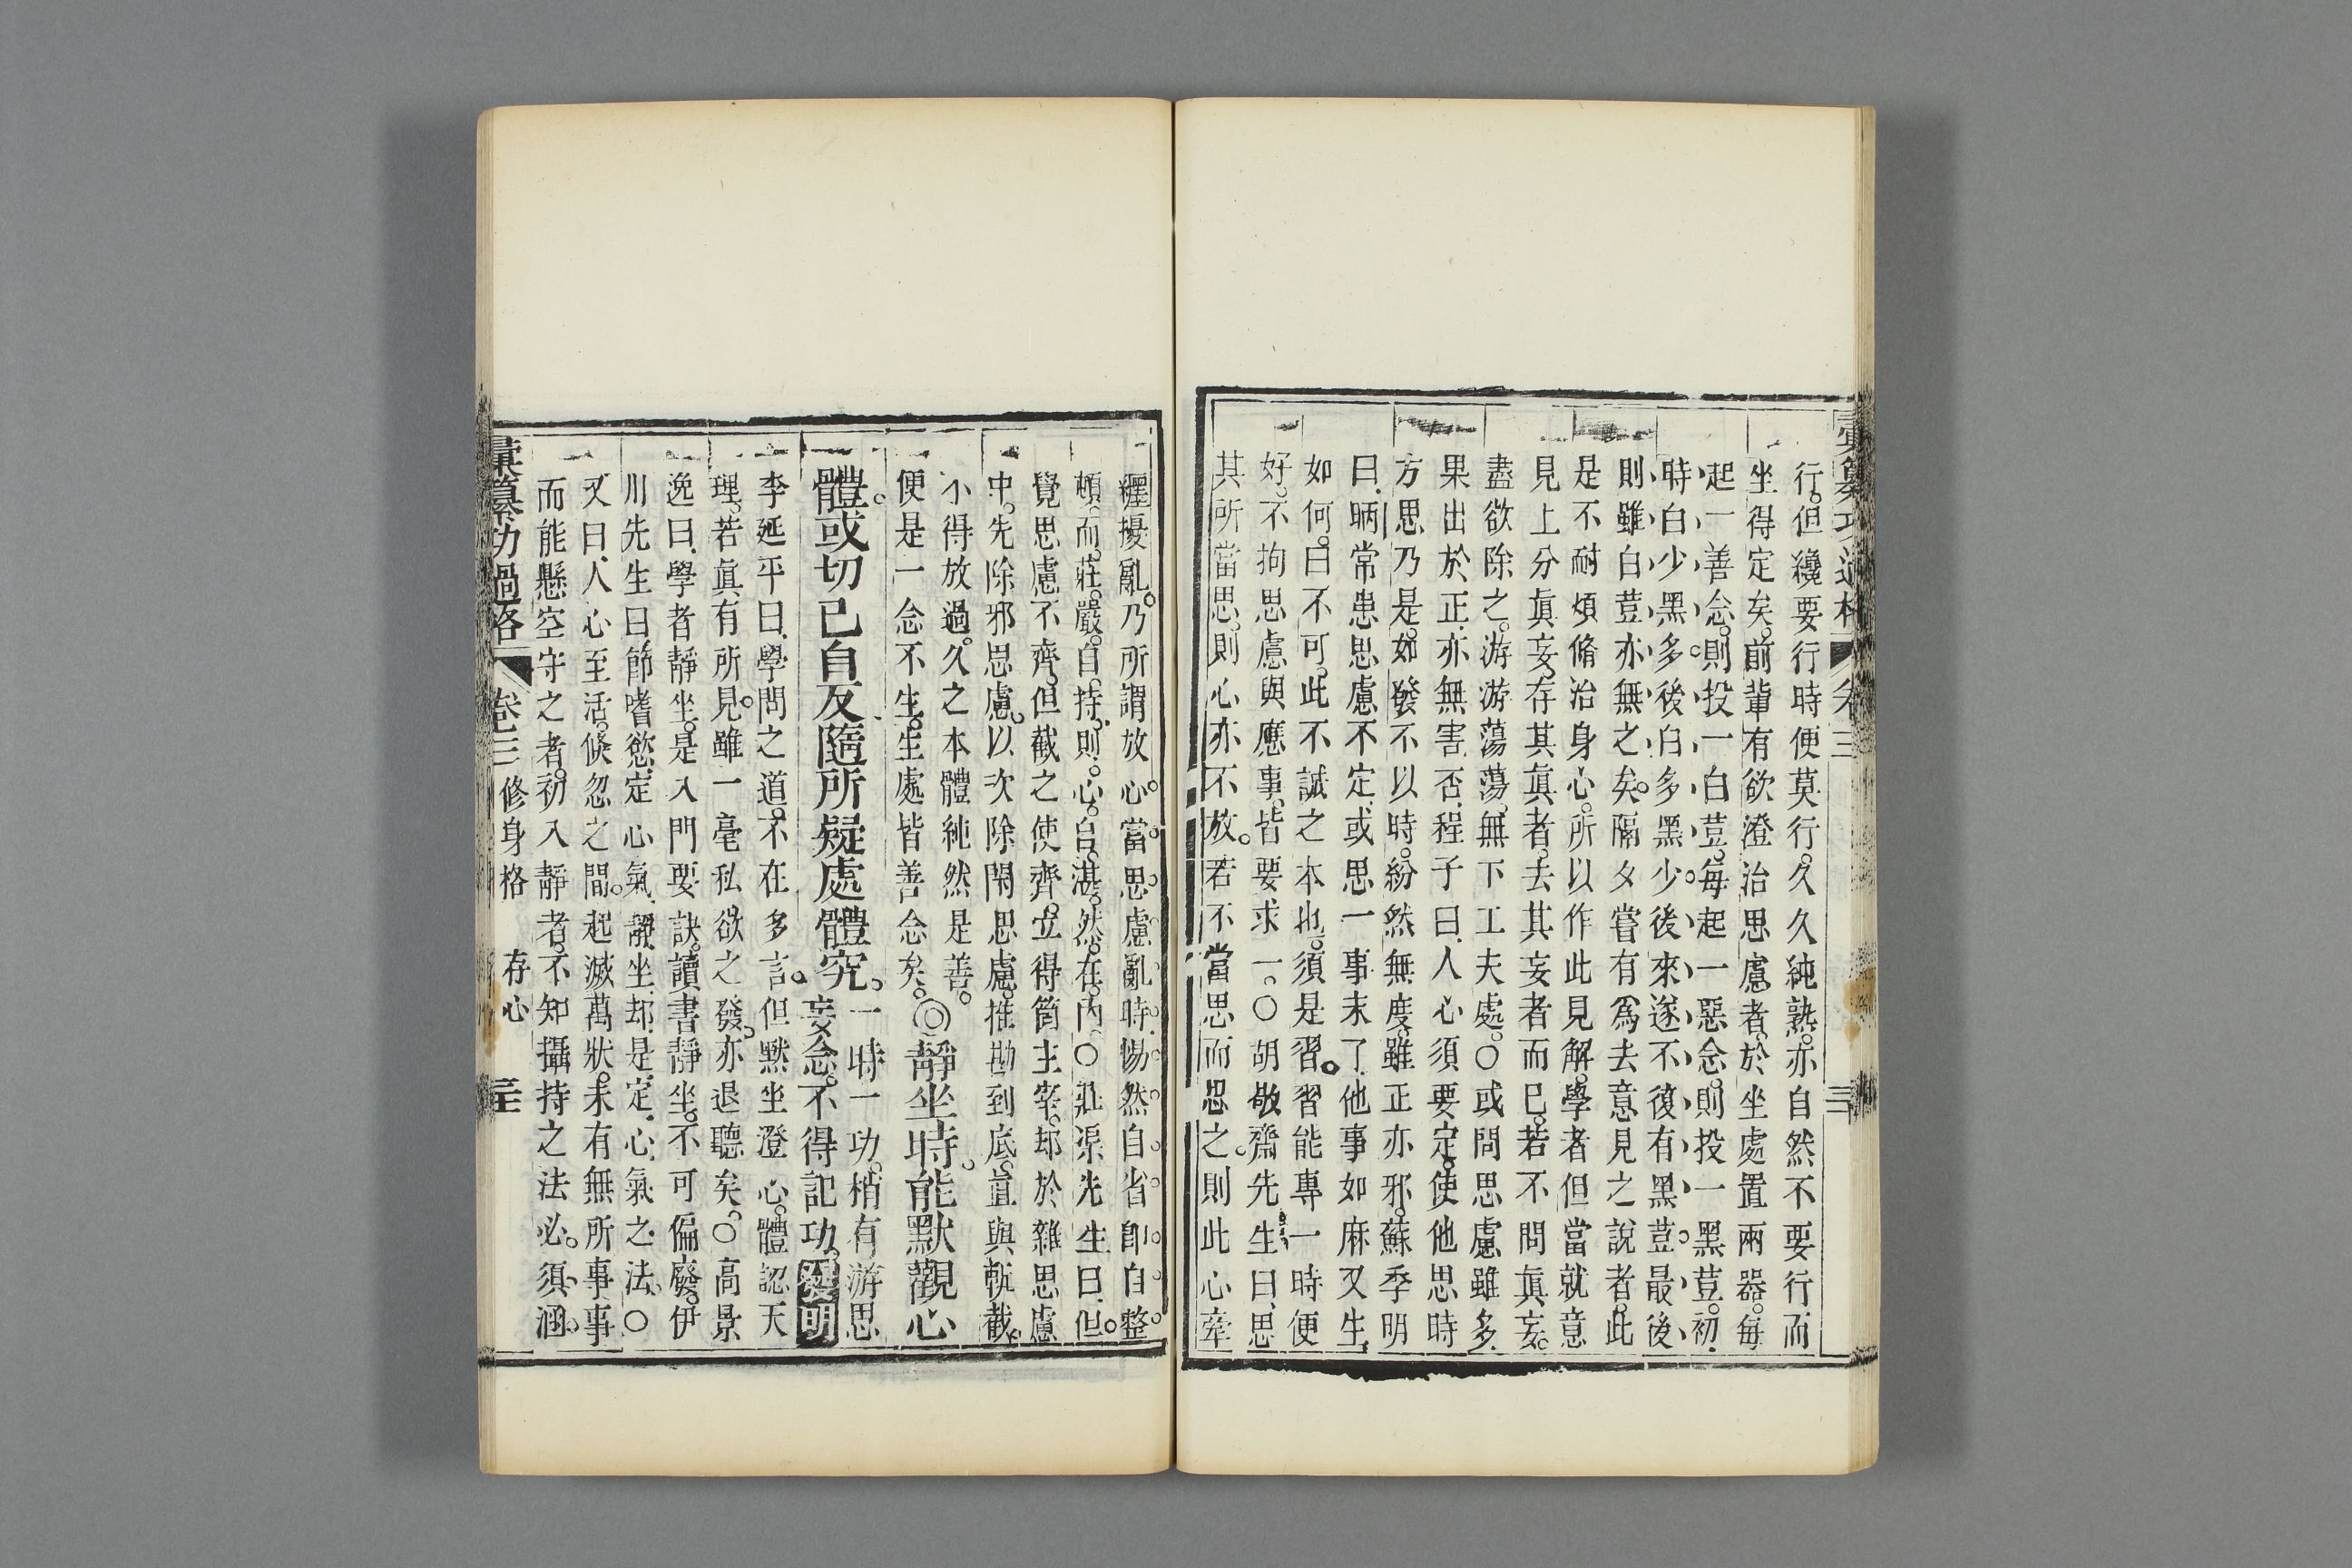 彙纂功過格 卷三
行。但纔要行時便莫行。久久純熟。亦自然不要行而
坐得定矣。前輩有欲澄治思慮者。於坐處置兩器。每
起一善念。則投一白荳。每起一惡念。則投一黑荳。初
時白少黑多。後白多黑少。後來遂不復有黑荳。最後
則雖白荳亦無之矣。隔夕嘗有爲去意見之說者。此
是不耐煩脩治身心。所以作此見解。學者但當就意
見上分眞妄。存其眞者。去其妄者而已。若不問眞妄。
盡欲除之。游游蕩蕩。無下工夫處。○或問思慮雖多。
果出於正。亦無害否。程子曰。人心須要定。使他思時
方思乃是。如發不以時。紛然無度。雖正亦邪。蘇季明
曰。昞常患思慮不定。或思一事未了。他事如麻又生。
如何。曰不可。此不誠之本也。須是習。習能專一時便
好。不拘思慮與應事。皆要求一。○胡敬齋先生曰。思
其所當思。則心亦不放。若不當思而思之。則此心牽
纏擾亂。乃所謂放心。當思慮亂時。惕然自省。卽自整
頓。而莊嚴自持。則心自湛然在內。○莊渠先生曰。但
覺思慮不齊。但截之使齊。立得箇主宰。却於雜思慮
中。先除邪思慮。以次除閑思慮。推勘到底。直與斬截。
不得放過。久之本體純然是善。
便是一念不生。生處皆善念矣。◎靜坐時。能默觀心
體。或切己自反。隨所疑處體究。一時一功。稍有游思
妄念。不得記功。發明
李延平曰。學問之道。不在多言。但默坐澄心。體認天
理。若眞有所見。雖一毫私欲之發。亦退聽矣。○高景
逸曰。學者靜坐。是入門要訣。讀書靜坐。不可偏廢。伊
川先生曰。節嗜慾。定心氣。靜坐却是定心氣之法。○
又曰。人心至活。倏忽之間。起滅萬狀。未有無所事事
而能懸空守之者。初入靜者。不知攝持之法。必須涵
彙纂功過格 卷三 修身格 存心